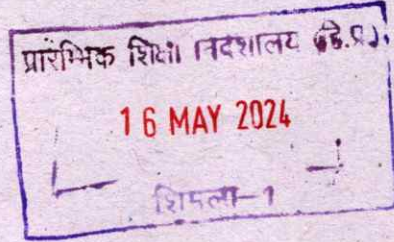 प्रारम्भिक शिक्षा निदेशालय (हि.प्र.)
16 MAY 2024
शिमला-1